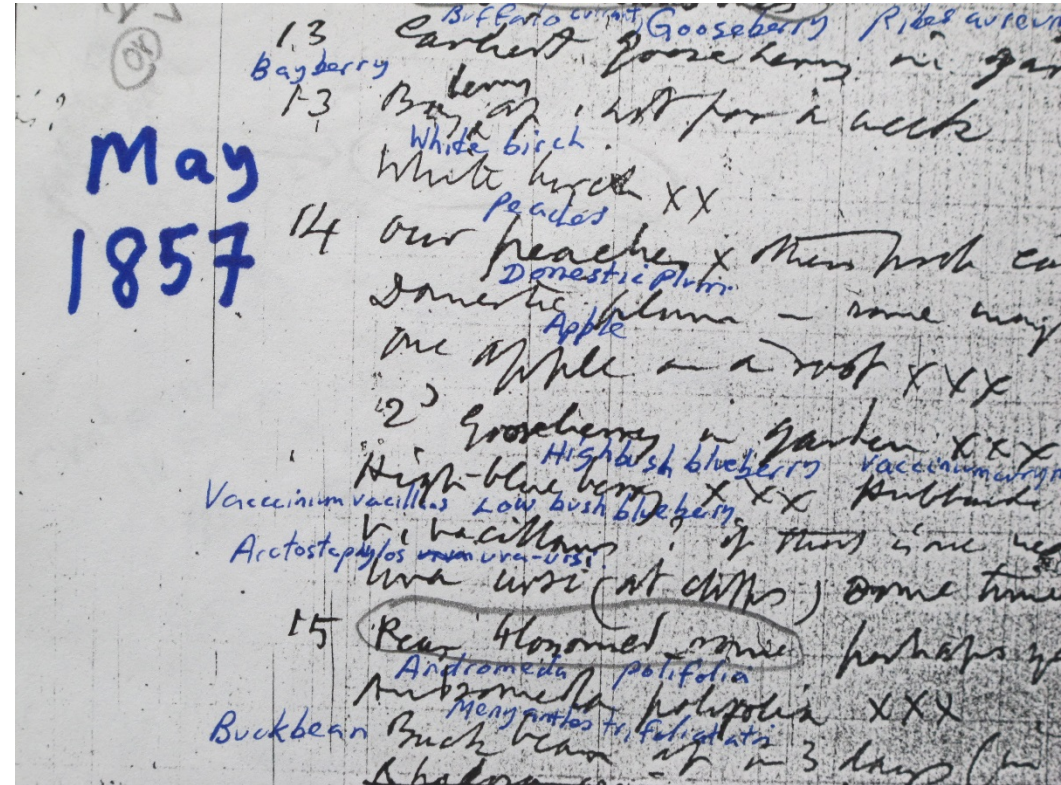 Buffalo currant, Gooseberry Ribes aureum
13 Earliest gooseberry in gar
Bayberry
13 Bayberry ap. not for a week
White birch
White birch XX
May
1857
Peaches
14 our peaches x
Domestic Plum
Domestic plum – some may
Apple
one apple on a roof XXX
2º Gooseberry in garden XXX
Highbush blueberry
High-blueberry XXX Hubbard
Vaccinium vacillans Low bush blueberry
V. vacillans if there is one
Arctostaphylos uva-ursi
Uva ursi (at cliffs) some time
15 Pear blossomed some perhaps
Andromeda polifolia
Andromeda polifolia XXX
Buckbean Menyanthes trifoliata
Buckbean ap in 3 days (in